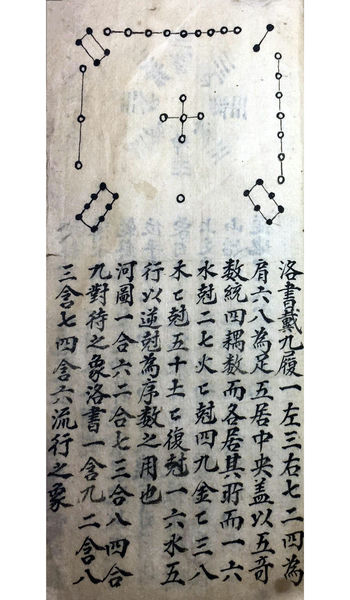 洛書戴九履一左三右七二四為
肩六八為足五居中央盖以五奇
数統四耦数而各居其所而一六
水尅二七火匕尅四九金匕尅三八
木匕尅五十土匕復尅一六水五
行以逆尅為序数之用也
河圖一合六二合七三合八四合
九對待之象洛書一含九二含八
三含七四含六流行之象